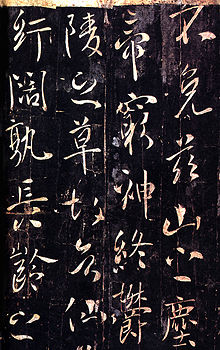 不免茲山之塵
帝窮神終鬱
陵之草故知仙
紆闊孰長齡之